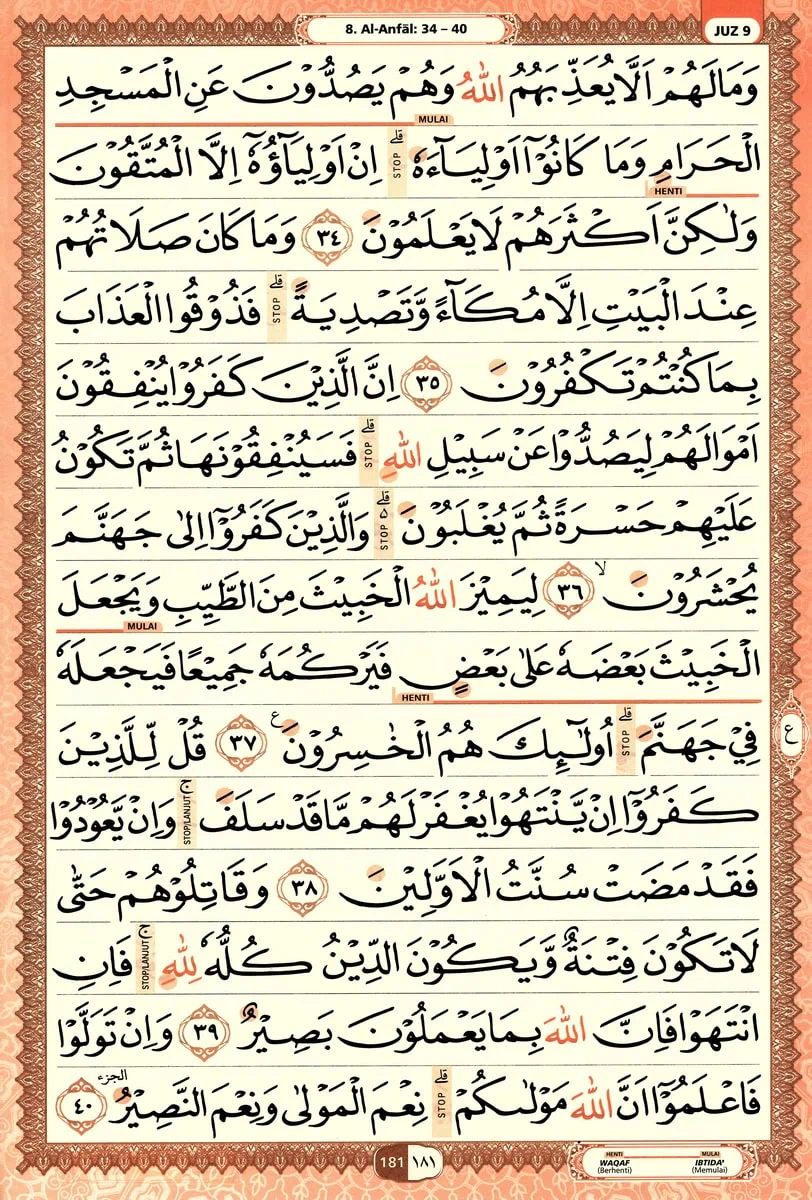 8. Al-Anfāl: 34 – 40
JUZ 9
وَمَا لَهُمْ اَلَّا يُعَذِّبَهُمُ اللّٰهُ وَهُمْ يَصُدُّوْنَ عَنِ الْمَسْجِدِ
MULAI
الْحَرَامِ وَمَا كَانُوْٓا اَوْلِيَاۤءَهٗ ۗ STOP اِنْ اَوْلِيَاۤؤُهٗٓ اِلَّا الْمُتَّقُوْنَ
HENTI
وَلٰكِنَّ اَكْثَرَهُمْ لَا يَعْلَمُوْنَ ٣٤ وَمَا كَانَ صَلَاتُهُمْ
عِنْدَ الْبَيْتِ اِلَّا مُكَاۤءً وَّتَصْدِيَةً ۗ STOP فَذُوْقُوا الْعَذَابَ
بِمَا كُنْتُمْ تَكْفُرُوْنَ ٣٥ اِنَّ الَّذِيْنَ كَفَرُوْا يُنْفِقُوْنَ
اَمْوَالَهُمْ لِيَصُدُّوْا عَنْ سَبِيْلِ اللّٰهِ ۗ STOP فَسَيُنْفِقُوْنَهَا ثُمَّ تَكُوْنُ
عَلَيْهِمْ حَسْرَةً ثُمَّ يُغْلَبُوْنَ ەۗ STOP وَالَّذِيْنَ كَفَرُوْٓا اِلٰى جَهَنَّمَ
يُحْشَرُوْنَۙ ٣٦ لِيَمِيْزَ اللّٰهُ الْخَبِيْثَ مِنَ الطَّيِّبِ وَيَجْعَلَ
MULAI
الْخَبِيْثَ بَعْضَهٗ عَلٰى بَعْضٍ فَيَرْكُمَهٗ جَمِيْعًا فَيَجْعَلَهٗ
HENTI
فِيْ جَهَنَّمَ ۗ STOP اُولٰۤىِٕكَ هُمُ الْخٰسِرُوْنَ ࣖ ٣٧ قُلْ لِّلَّذِيْنَ
كَفَرُوْٓا اِنْ يَّنْتَهُوْا يُغْفَرْ لَهُمْ مَّا قَدْ سَلَفَۚ STOP/LANJUT وَاِنْ يَّعُوْدُوْا
فَقَدْ مَضَتْ سُنَّتُ الْاَوَّلِيْنَ ٣٨ وَقَاتِلُوْهُمْ حَتّٰى
لَا تَكُوْنَ فِتْنَةٌ وَّيَكُوْنَ الدِّيْنُ كُلُّهٗ لِلّٰهِۚ STOP/LANJUT فَاِنِ
انْتَهَوْا فَاِنَّ اللّٰهَ بِمَا يَعْمَلُوْنَ بَصِيْرٌ ٣٩ وَاِنْ تَوَلَّوْا
فَاعْلَمُوْٓا اَنَّ اللّٰهَ مَوْلٰىكُمْ ۗ STOP نِعْمَ الْمَوْلٰى وَنِعْمَ النَّصِيْرُ الجزء ٤٠
ع
181 ١٨١
HENTI WAQAF (Berhenti)
MULAI IBTIDA' (Memulai)